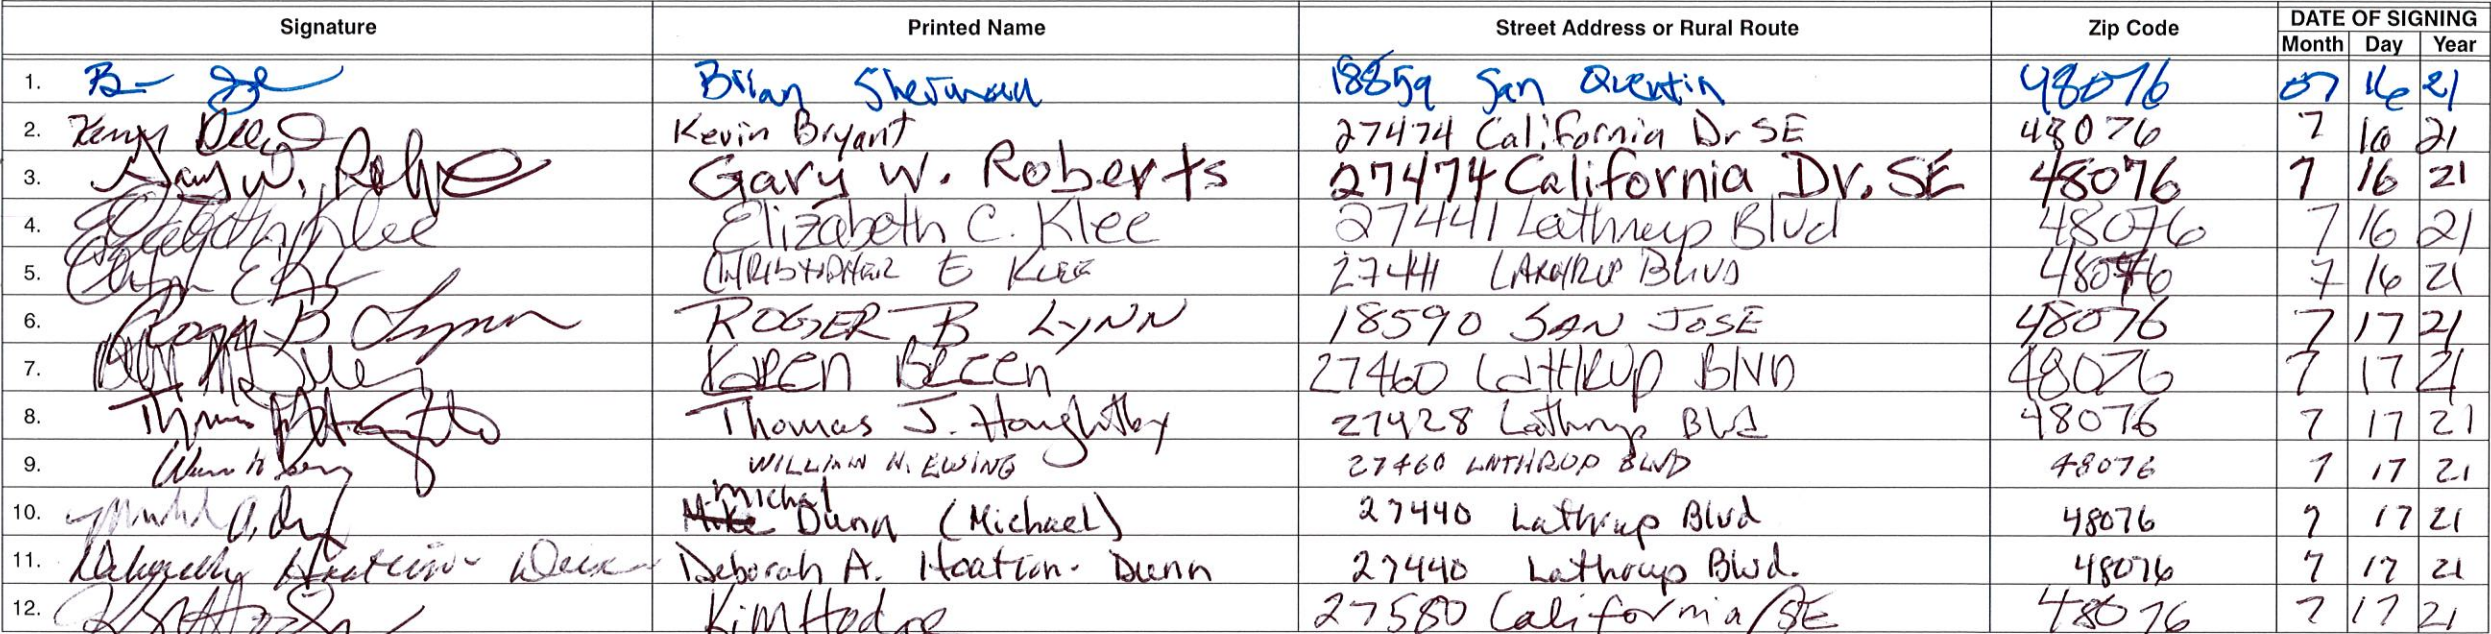 Signature Printed Name Street Address or Rural Route Zip Code DATE OF SIGNING
Month Day Year
1. Brian Sherman 18859 San Quentin 48076 07 16 21
2. Kevin Bryant 27474 California Dr SE 48076 7 16 21
3. Gary W. Roberts Gary W. Roberts 27474 California Dr. SE 48076 7 16 21
4. Elizabeth Klee Elizabeth C. Klee 27441 Lathrup Blvd 48076 7 16 21
5. CHRISTOPHER E KLEE 27441 LATHRUP BLVD 48076 7 16 21
6. Roger B Lynn ROGER B LYNN 18590 SAN JOSE 48076 7 17 21
7. KAREN 27460 LATHRUP BLVD 48076 7 17 21
8. Thomas J. Houghtby 27428 Lathrup Blvd 48076 7 17 21
9. WILLIAM H. EWING 27460 LATHRUP BLVD 48076 7 17 21
10. Michal Mike Dunn (Michael) 27440 Lathrup Blvd 48076 7 17 21
11. Deborah A. Hoatlin-Dunn 27440 Lathrup Blvd. 48076 7 17 21
12. Kim Hodge 27580 California SE 48076 7 17 21